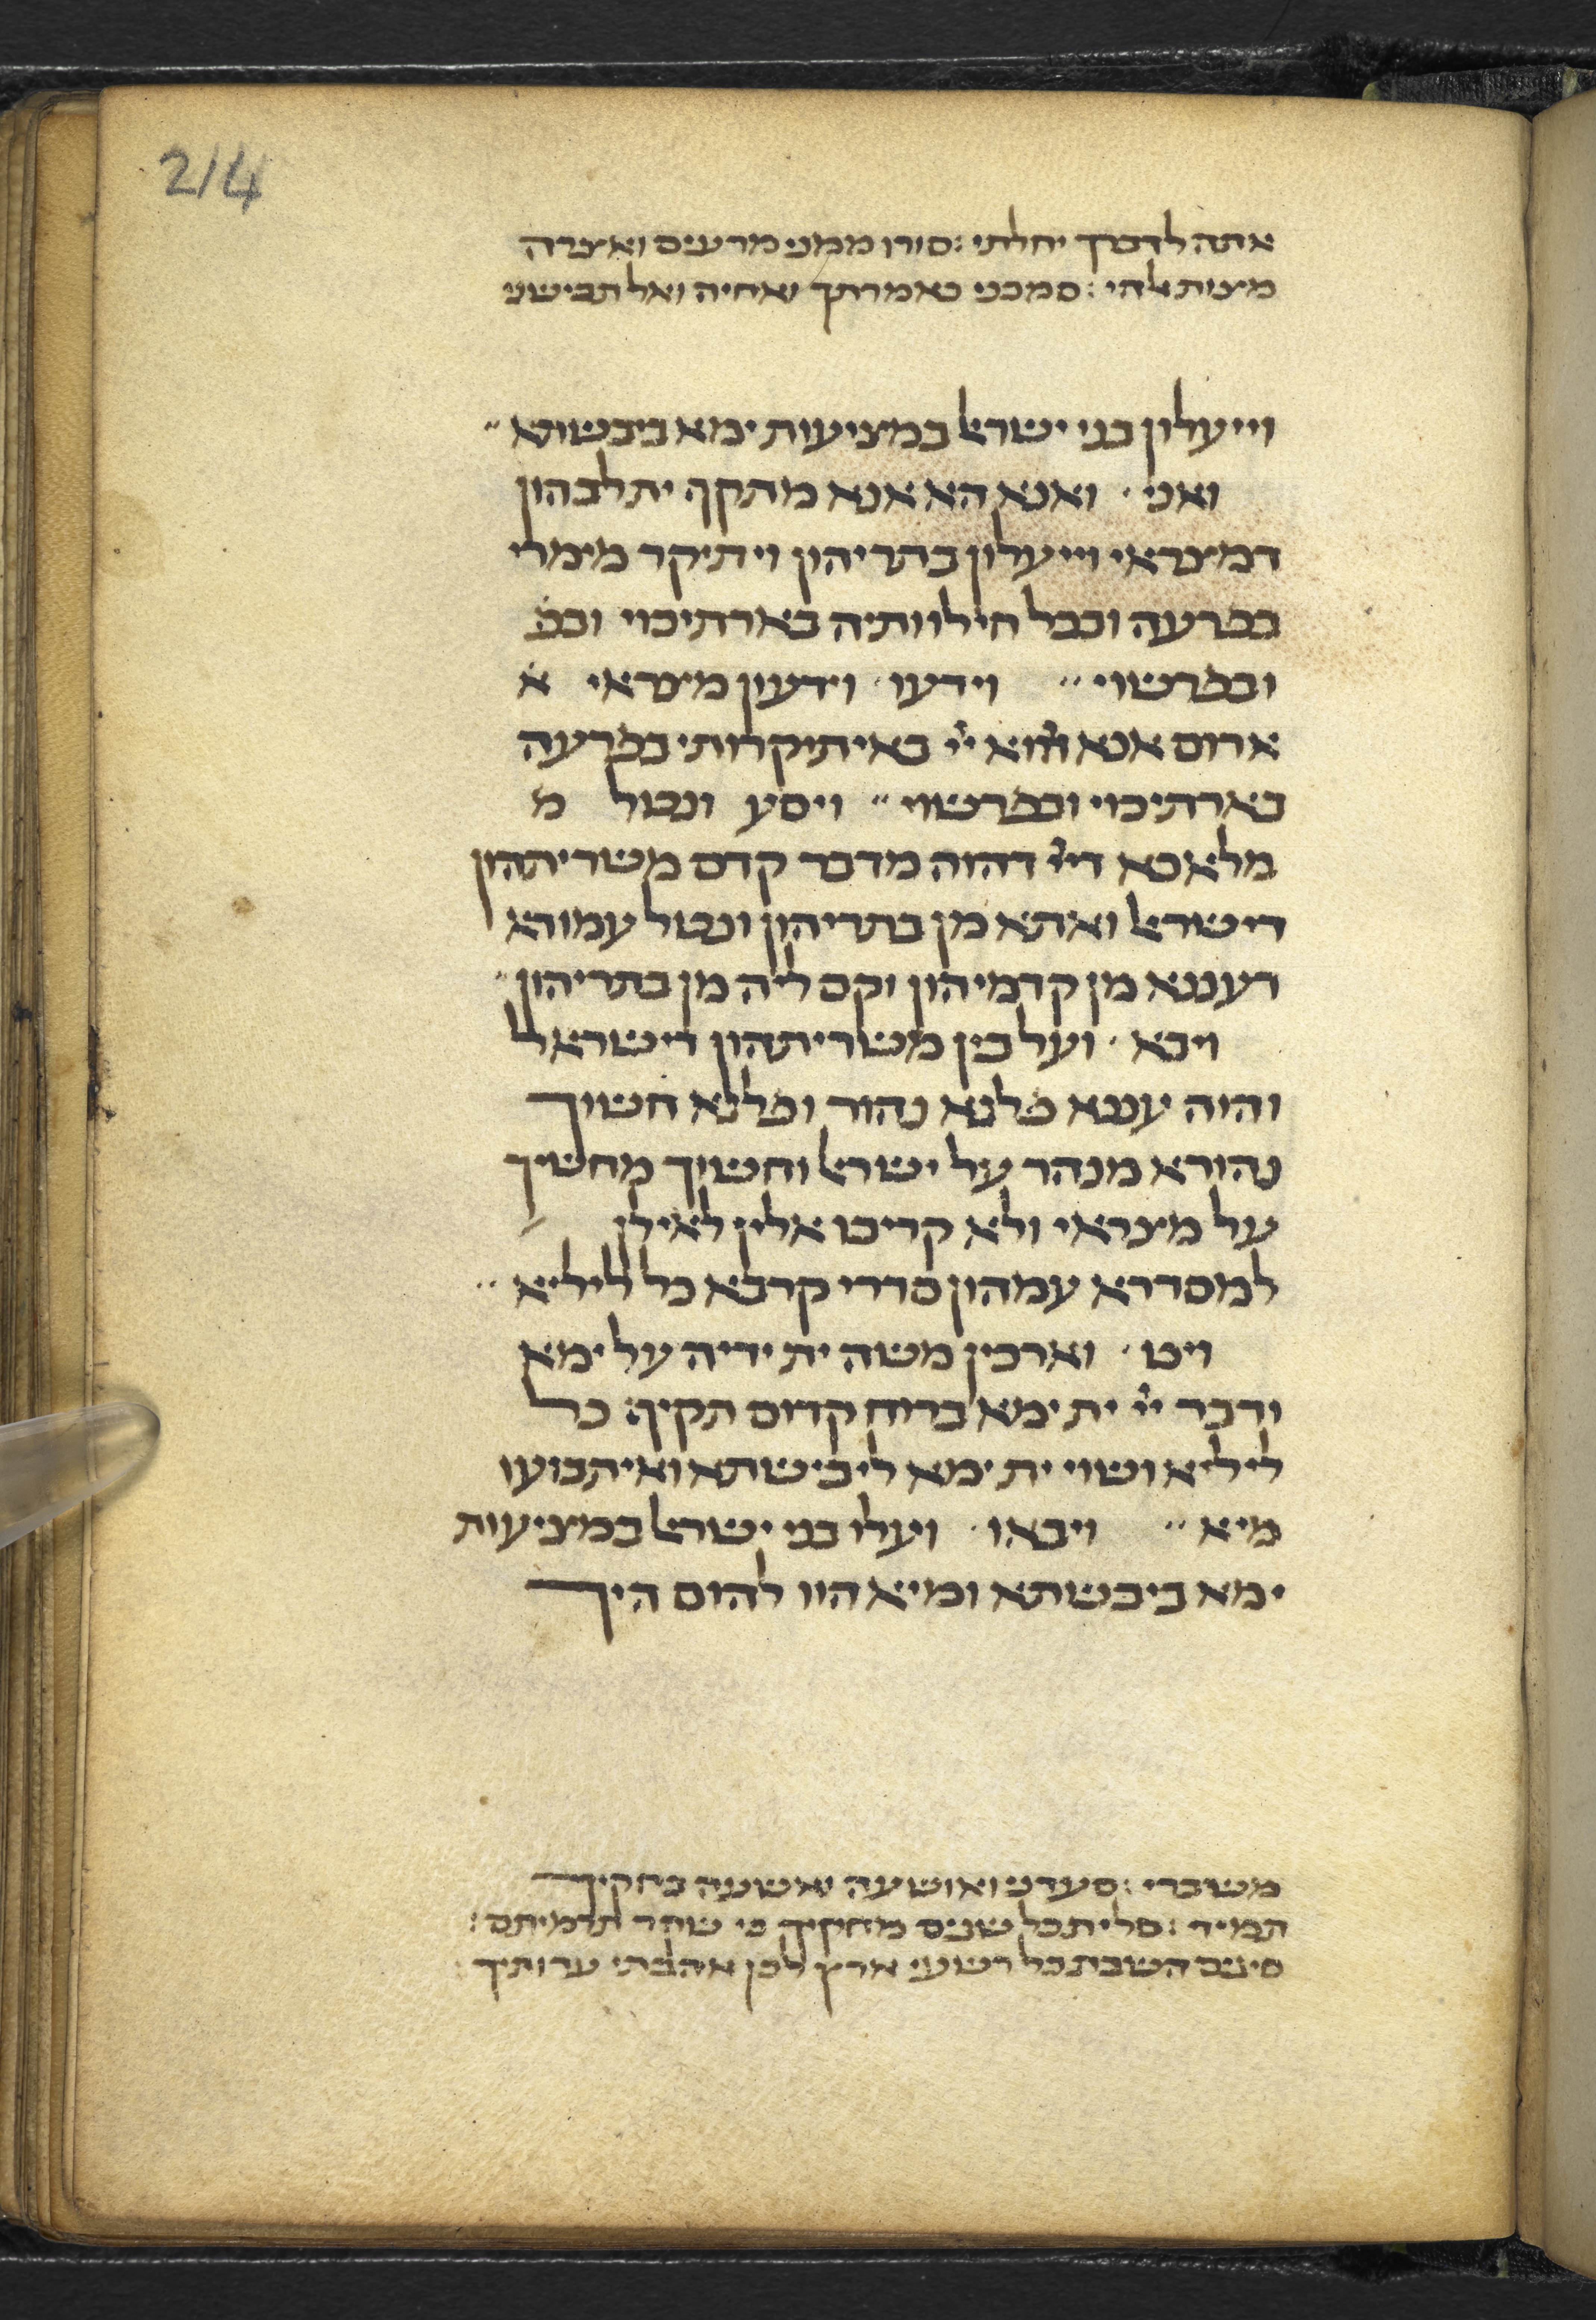 214
אתה לדברך יחלתי : סורו ממני מרעים ואצרה
מצות אלהי : סמכני כאמרתך ואחיה ואל תבישני
וייעלון בני ישראל במציעות ימא ביבשותא ״
ואני · ואנא הא אנא מתקף ית לבהון
דמצראי וייעלון בתריהון ויתיקר מימרי
בפרעה ובכל חילוותיה בארתיכוי ובפ
ובפרשוי ״ וידעו · וידעון מצראי א
ארום אנא הוא ייי באיתיקרותי בפרעה
בארתיכוי ובפרשוי ״ ויסע ונטל מ
מלאכא דייי דהוה מדבר קדם משריתהון
דישראל ואתא מן בתריהון ונטל עמודא
דעננא מן קדמיהון וקם ליה מן בתריהון ״
ויבא · ועל בין משריתהון דישראל
והוה עננא פלגא נהור ופלגא חשוך
נהורא מנהר על ישראל וחשוך מחשיך
על מצראי ולא קריבו אלין לאילין
למסדרא עמהון סדרי קרבא כל ליליא ״
ויט · וארכין משה ית ידיה על ימא
ודבר ייי ית ימא ברוח קדום תקיף כל
ליליא ושוי ית ימא ליבישתא ואיתבזעו
מיא ״ ויבאו · ועלו בני ישראל במציעות
ימא ביבשתא ומיא הוו להום היך
משברי : סעדני ואושעה ואשעה בחקיך
תמיד : סלית כל שוגים מחקיך כי שקר תרמיתם :
סיגים השבת כל רשעי ארץ לכן אהבתי עדותיך :